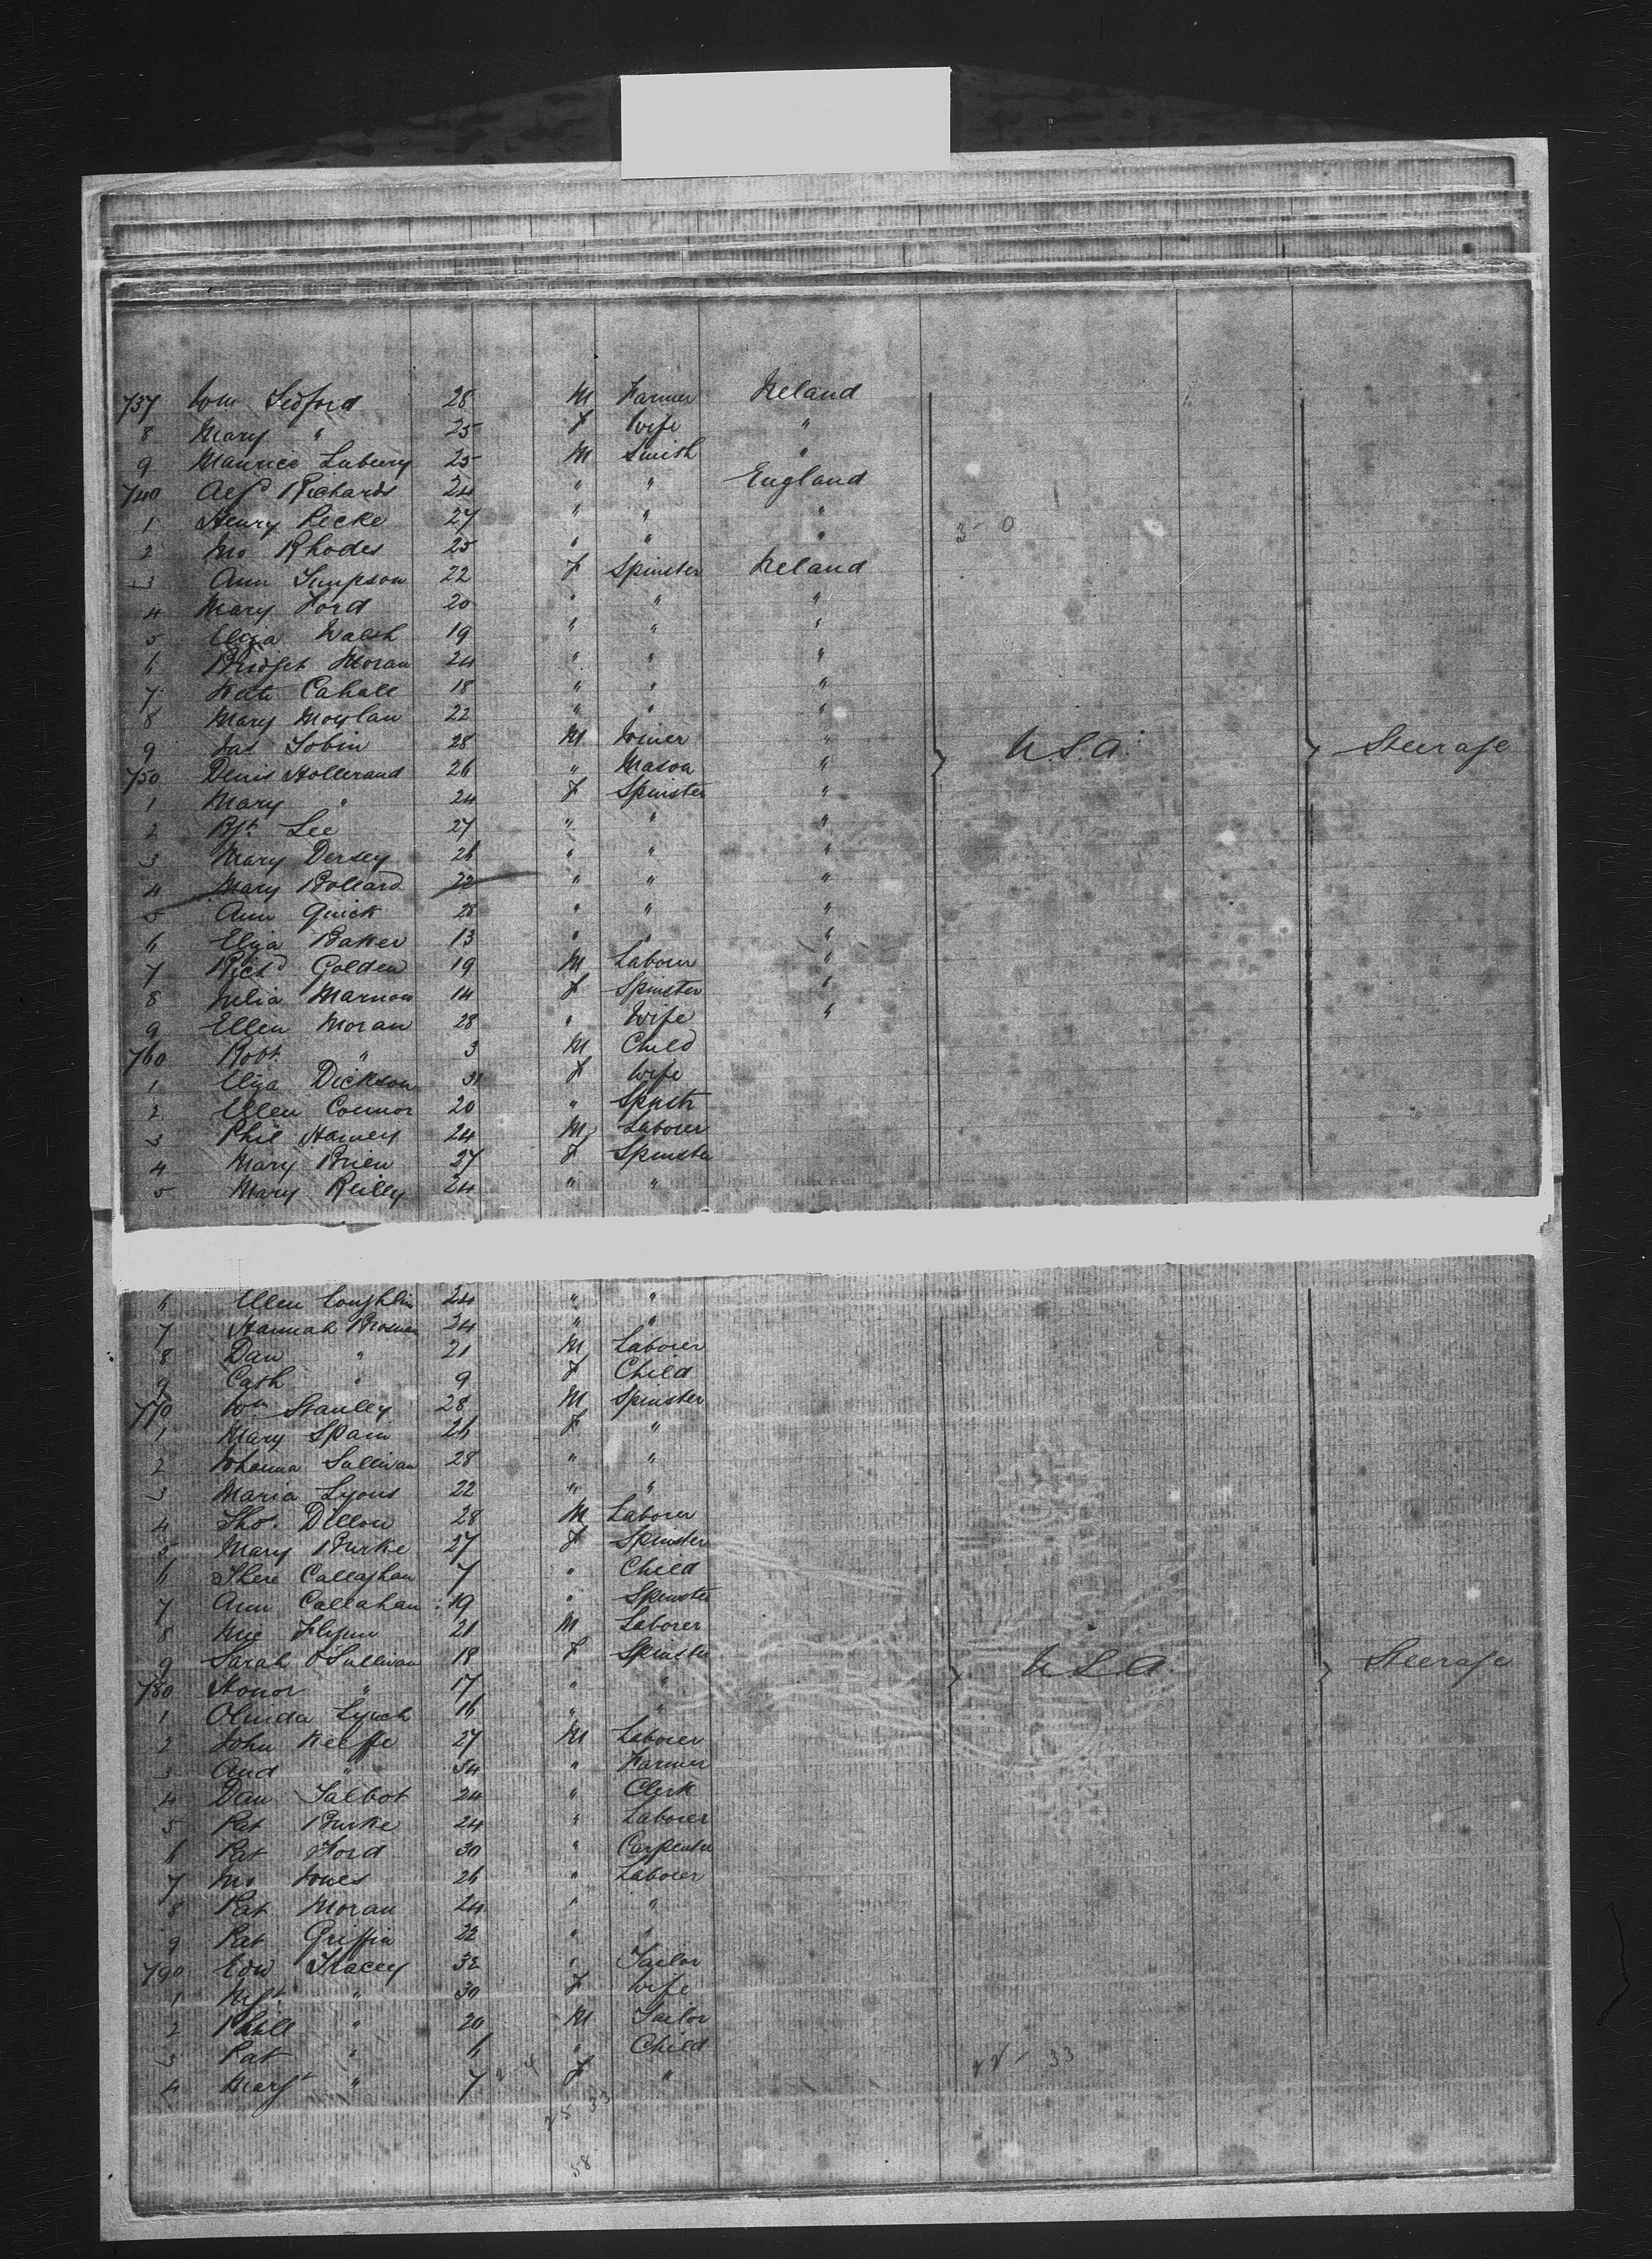 737 Wm Ledford 28 M Farmer Ireland
8 Mary " 25 F Wife "
9 Maurice 25 M Smith "
740 Alfd Richards 24 " " England
1 Henry Recke 27 " " "
2 Jno Rhodes 25 " " "
3 Ann Simpson 22 F Spinster Ireland
4 Mary Ford 20 " " "
5 Eliza Walsh 19 " " "
6 Bridget Moran 24 " " "
7 Kate Cahall 18 " " "
8 Mary Moylan 22 " " "
9 Jas Tobin 28 M Miner " U.S.A. Steerage
750 Denis Hollerand 26 " Mason "
1 Mary " 24 F Spinster "
2 Bgt Lee 27 " " "
3 Mary Dersey 26 " " "
4 Mary Bollard 22 " " "
5 Ann Quick 28 " " "
6 Eliza Baker 13 " " "
7 Richd Golden 19 M Labour "
8 Julia 14 F Spinster "
9 Ellen Moran 28 " Wife "
760 Robt " 3 M Child
1 Eliza Dickson 31 F Wife
2 Ellen Connor 20 " Spinstr
3 Phil Harvey 24 M Laborer
4 Mary Brien 27 F Spinster
5 Mary Reilly 24 " "
6 Ellen Coughlin 24 " "
7 Hannah Brosnan 24 " "
8 Dan " 21 M Laborer
9 Cath " 9 F Child
770 Wm Stanley 28 M Spinster
1 Mary Spain 26 F "
2 Johanna Sullivan 28 " "
3 Maria Lyons 22 " "
4 Tho. Dillon 28 M Laborer
5 Mary Burke 27 F Spinster
6 There Callaghan 7 " Child
7 Ann Callahan 19 " Spinster
8 Flynn 21 M Laborer
9 Sarah O'Sullivan 18 F Spinster U.S.A. Steerage
780 Honor " 17 " "
1 Lynch 16 " "
2 John Keeffe 27 M Laborer
3 And " 34 " Farmer
4 Dan Talbot 24 " Clerk
5 Pat Burke 24 " Laborer
6 Pat Ford 30 " Carpenter
7 Jno Jones 26 " Laborer
8 Pat Moran 24 " "
9 Pat Griffin 22 " "
790 Edw Tracey 32 " Tailor
1 Mgt " 30 F Wife
2 Phill " 20 M Tailor
3 Pat " 6 " Child
4 Margt " 7 F "
33
33
58